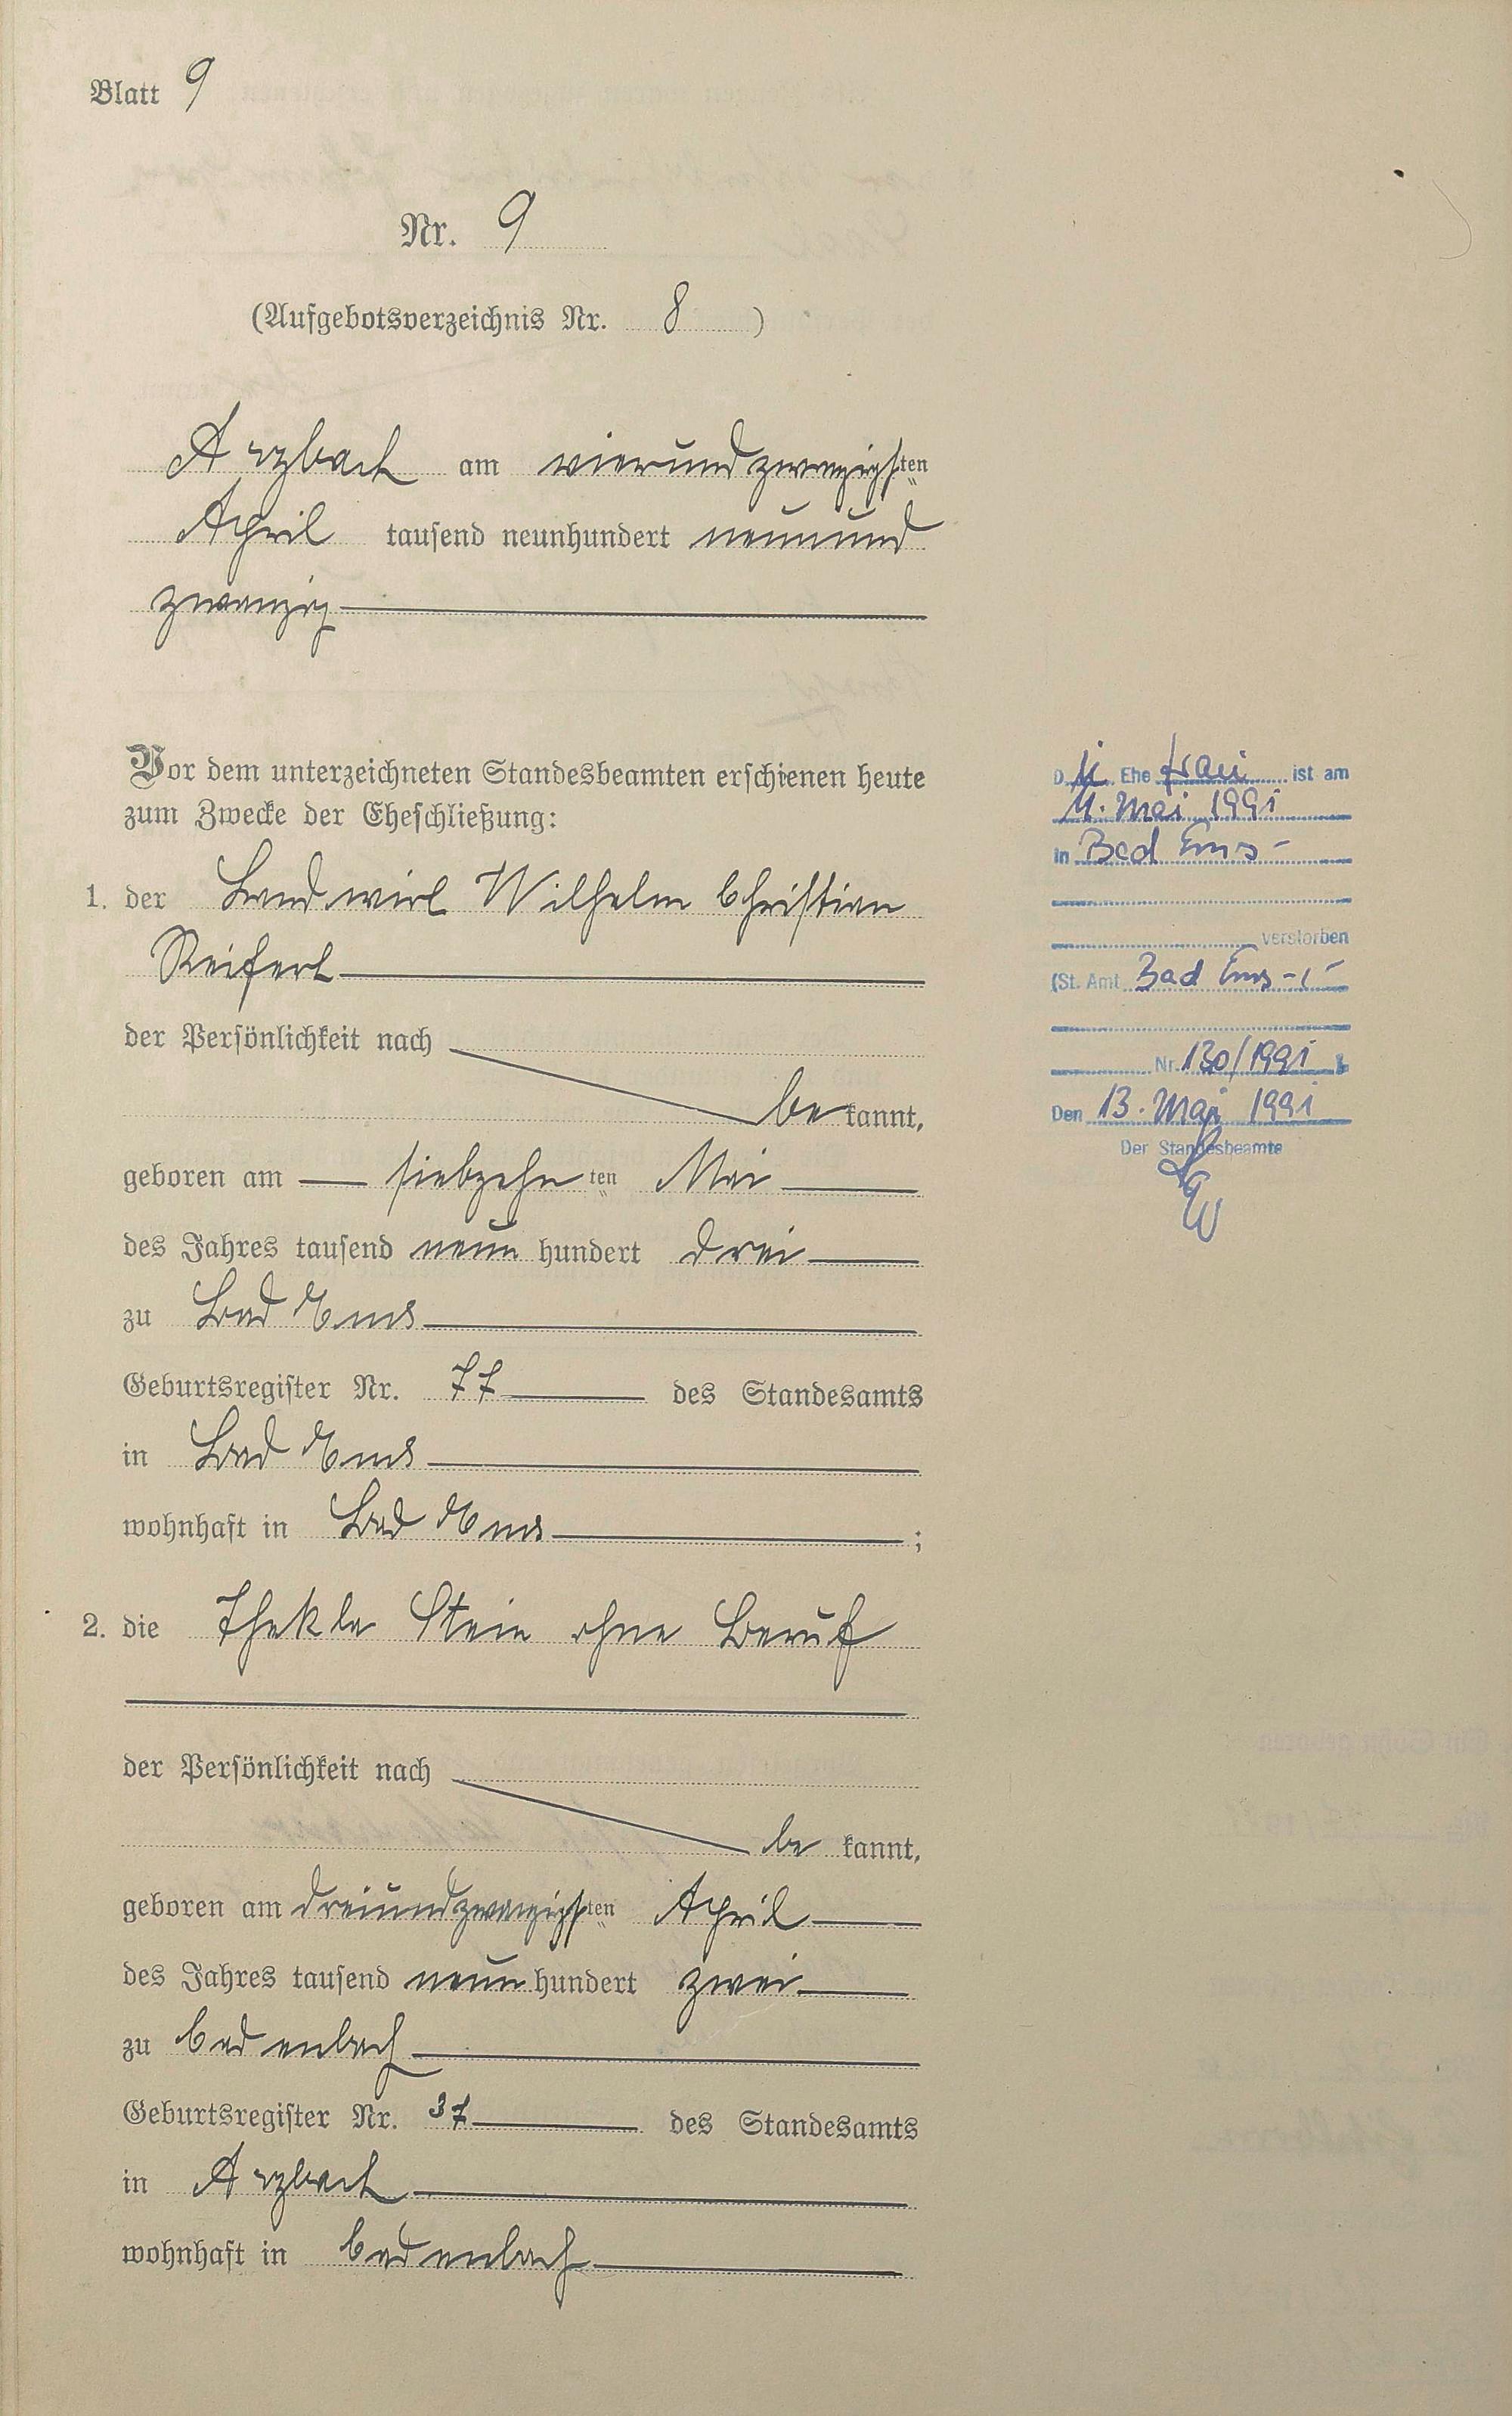 Blatt 9
Nr. 9
(Aufgebotsverzeichnis Nr. 8 )
Arzbach am vierundzwanzigsten
April tausend neunhundert neunund
zwanzig
Vor dem unterzeichneten Standesbeamten erschienen heute
zum Zwecke der Eheschließung:
1. der Landwirt Wilhelm Christian
Reifert
der Persönlichkeit nach
be kannt,
geboren am siebzehnten Mai
des Jahres tausend neun hundert drei
zu Bad Ems
Geburtsregister Nr. 77 des Standesamts
in Bad Ems
wohnhaft in Bad Ems ;
2. die Thekla Stein ohne Beruf
der Persönlichkeit nach
be kannt,
geboren am dreiundzwanzigsten April
des Jahres tausend neun hundert zwei
zu Cadenbach
Geburtsregister Nr. 37 des Standesamts
in Arzbach
wohnhaft in Cadenbach
D ie Ehe frau ist am
11. Mai 1991
in Bad Ems -
verstorben
(St. Amt Bad Ems -,-
Nr. 130/1991
Den 13. Mai 1991
Der Standesbeamte